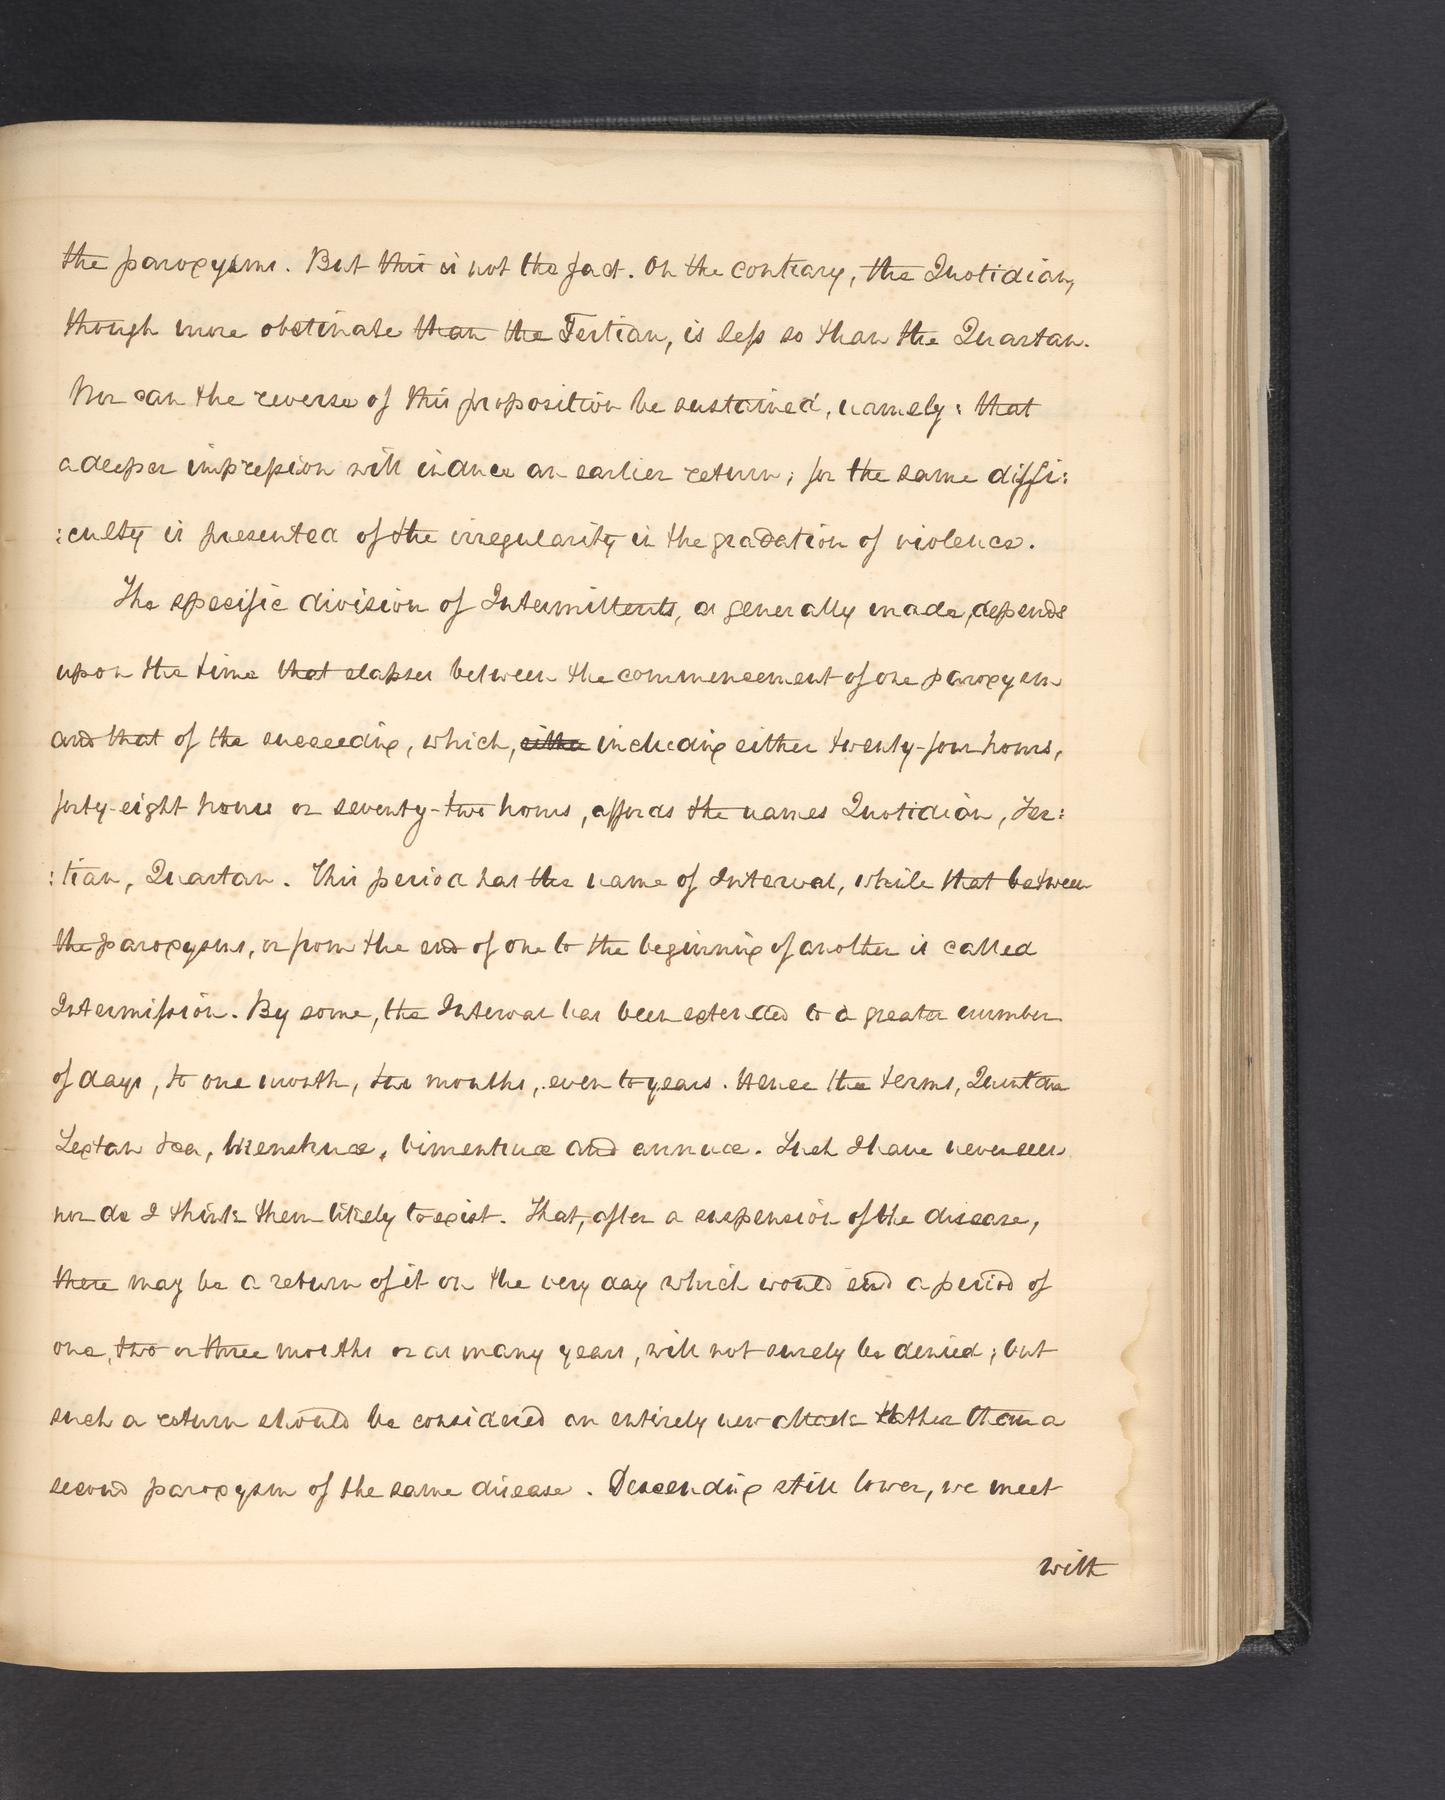 the paroxysms. But this is not the fact. On the contrary, the Quotidian,
though more obstinate than the Tertian, is less so than the Quartan.
Nor can the reverse of this proposition be sustained, namely: that
a deeper impression will induce an earlier return; for the same diffi:
:culty is presented of the irregularity in the gradation of violence.
The specific division of Intermittents, as generally made, depends
upon the time that elapses between the commencement of one paroxysm
and that of the succeeding, which, either including either twenty-four hours,
forty-eight hours or seventy-two hours, affords the names Quotidian, Ter:
:tian, Quartan. This period has the name of Interval, while that between
the paroxysms, or from the end of one to the beginning of another is called
Intermission. By some, the Interval has been extended to a greater number
of days, to one month, two months, even to years. Hence the terms, Quintan
Sextan &ca, Menstruæ, bimenstruæ and annuæ. Such I have never seen
nor do I think them likely to exist. That, after a suspension of the disease,
there may be a return of it on the very day which would end a period of
one, two or three months or as many years, will not surely be denied; but
such a return should be considered an entirely new attack rather than a
second paroxysm of the same disease. Descending still lower, we meet
with